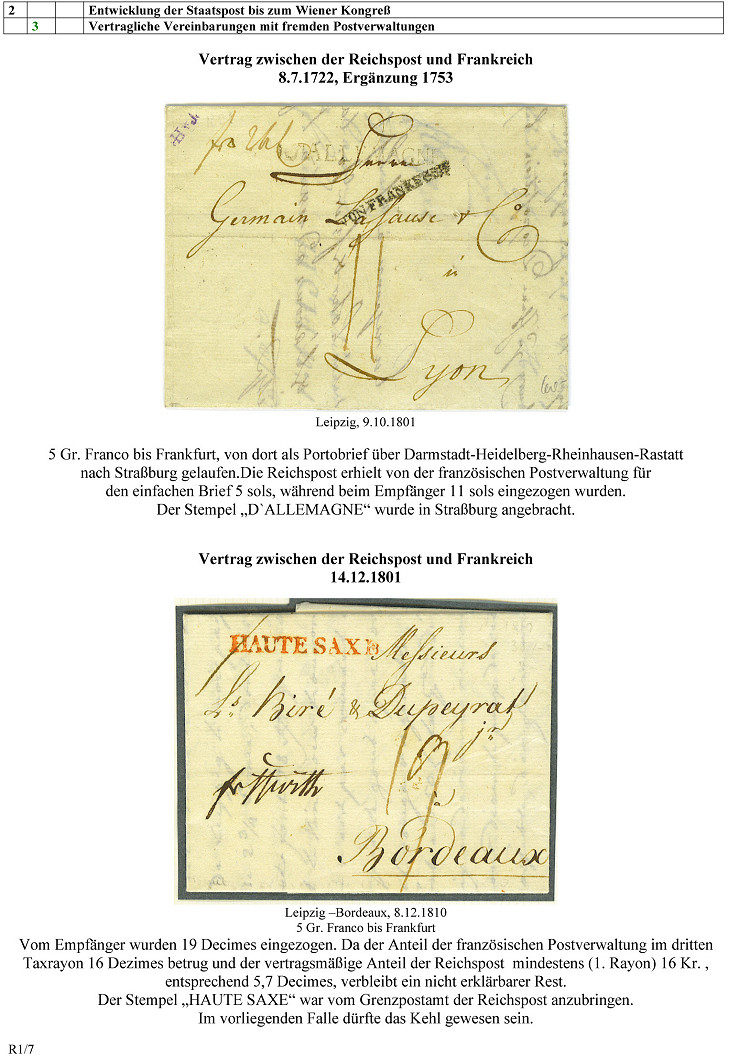 2 Entwicklung der Staatspost bis zum Wiener Kongreß
3 Vertragliche Vereinbarungen mit fremden Postverwaltungen
Vertrag zwischen der Reichspost und Frankreich
8.7.1722, Ergänzung 1753
D'ALLEMAGNE
VON FRANKFURT
Germain & Co
à
11
Lyon
Leipzig, 9.10.1801
5 Gr. Franco bis Frankfurt, von dort als Portobrief über Darmstadt-Heidelberg-Rheinhausen-Rastatt
nach Straßburg gelaufen.Die Reichspost erhielt von der französischen Postverwaltung für
den einfachen Brief 5 sols, während beim Empfänger 11 sols eingezogen wurden.
Der Stempel „D`ALLEMAGNE“ wurde in Straßburg angebracht.
Vertrag zwischen der Reichspost und Frankreich
14.12.1801
HAUTE SAXE
Messieurs
Biré & Dupeyrat
jr
19
à
Bordeaux
Leipzig –Bordeaux, 8.12.1810
5 Gr. Franco bis Frankfurt
Vom Empfänger wurden 19 Decimes eingezogen. Da der Anteil der französischen Postverwaltung im dritten
Taxrayon 16 Dezimes betrug und der vertragsmäßige Anteil der Reichspost mindestens (1. Rayon) 16 Kr. ,
entsprechend 5,7 Decimes, verbleibt ein nicht erklärbarer Rest.
Der Stempel „HAUTE SAXE“ war vom Grenzpostamt der Reichspost anzubringen.
Im vorliegenden Falle dürfte das Kehl gewesen sein.
R1/7